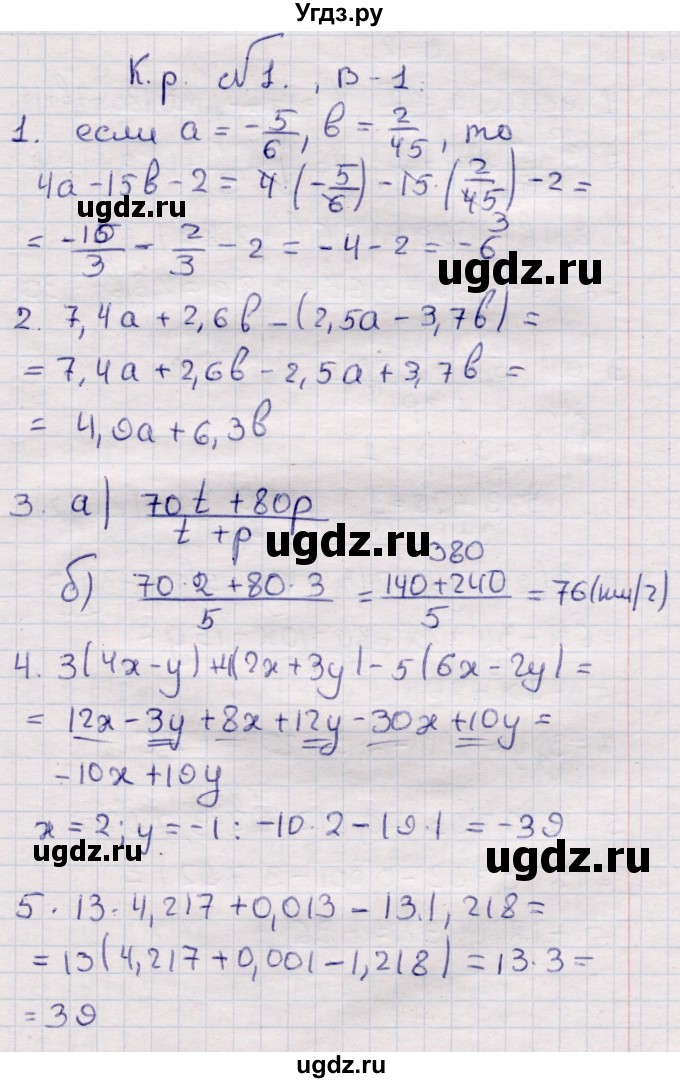 Угдз.ру
К.р. №1. , В-1.
1. если a = -5/6, b = 2/45, то
4a - 15b - 2 = 4·(-5/6) - 15·(2/45) - 2 =
ugdz.ru
= -10/3 - 2/3 - 2 = -4 - 2 = -6
ugdz.ru
2. 7,4a + 2,6b - (2,5a - 3,7b) =
= 7,4a + 2,6b - 2,5a + 3,7b =
= 4,9a + 6,3b
3. а) (70t + 80p)/(t + p)
ugdz.ru
б) (70·2 + 80·3)/5 = (140 + 240)/5 = 76 (км/г)
380
4. 3(4x - y) + 4(2x + 3y) - 5(6x - 2y) =
= 12x - 3y + 8x + 12y - 30x + 10y =
-10x + 19y
x = 2; y = -1 : -10·2 - 19·1 = -39
ugdz.ru
ugdz.ru
5. 13·4,217 + 0,013 - 13·1,218 =
= 13(4,217 + 0,001 - 1,218) = 13·3 =
= 39
ugdz.ru